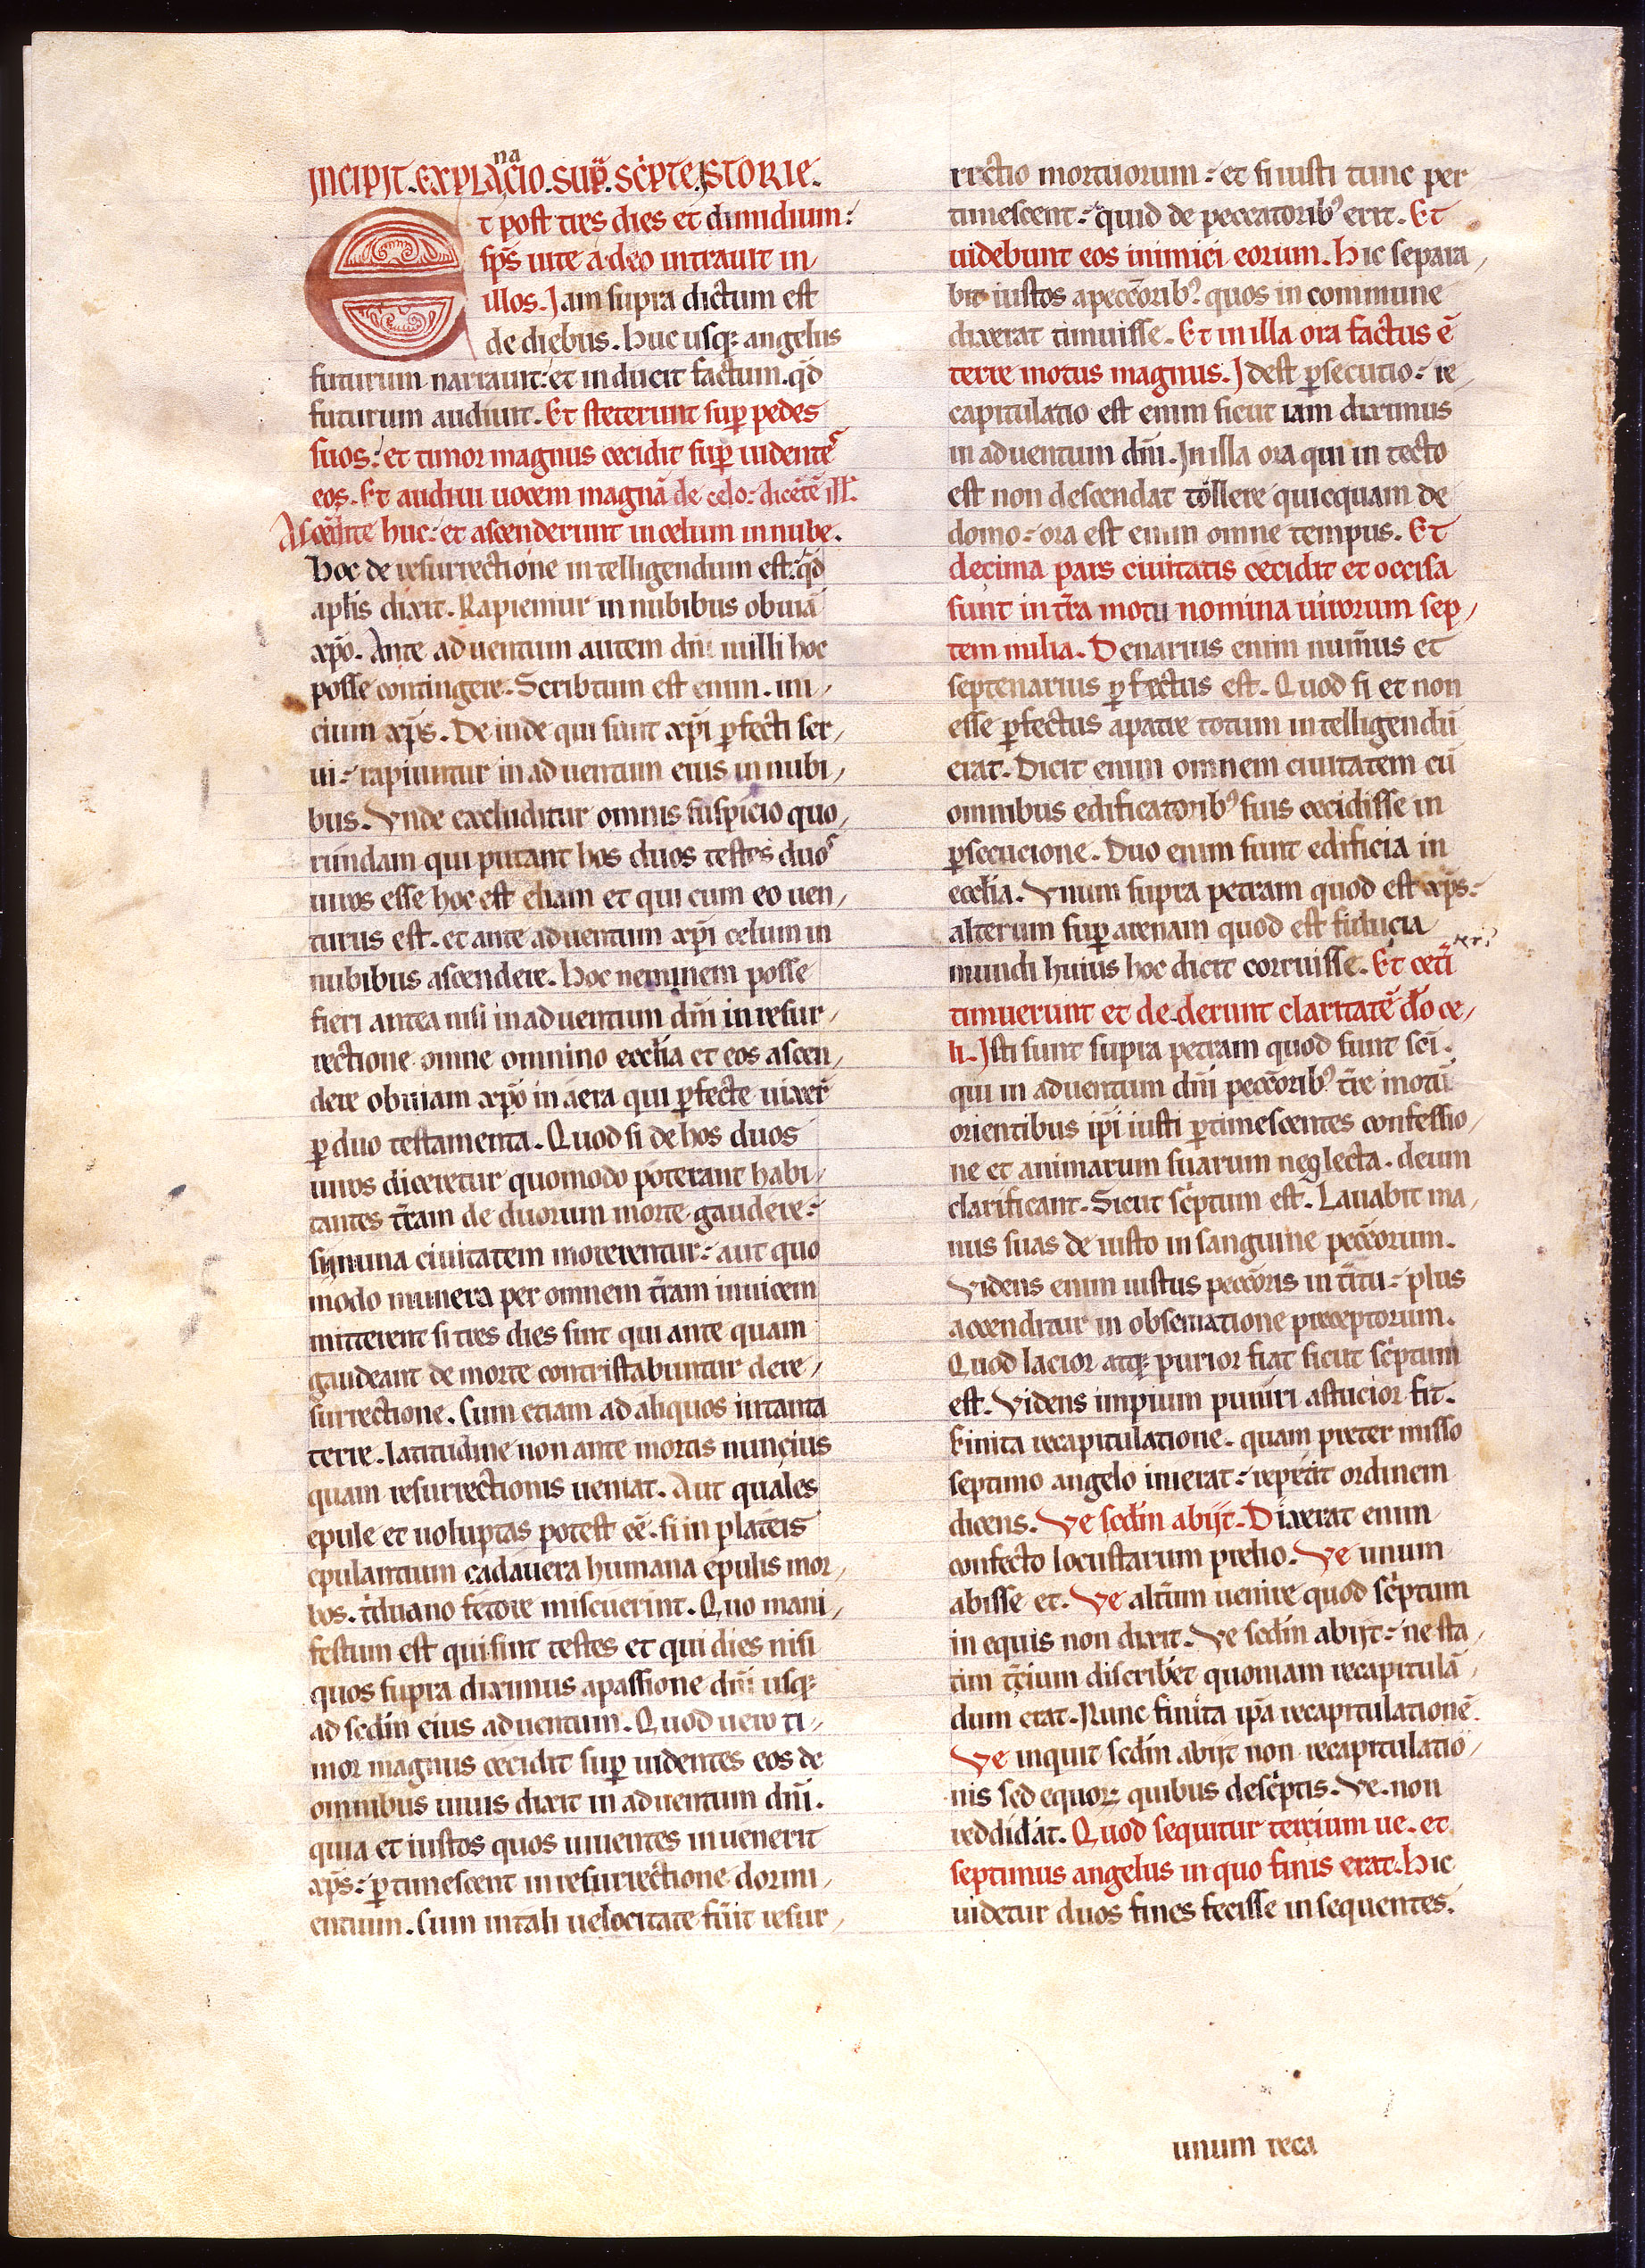 INCIPIT. EXPLAnaCIO. SUP̄. SC̄PTE. ISTORIE.
Et post tres dies et dimidium:
sp̄s uite a deo intrauit in
illos. Iam supra dictum est
de diebus. huc usq; angelus
futurum narrauit: et inducit factum. q̄d
futurum audiuit. Et steterunt sup̄ pedes
suos: et timor magnus cecidit sup̄ uidentes
eos. Et audiui uocem magnā de celo: dicētē ill̄.
Ascēdite huc: et ascenderunt in celum in nube.
hoc de resurrectione intelligendum est: q̄d
apl̄s dixit. Rapiemur in nubibus obuiā
xp̄o. Ante aduentum autem dn̄i nulli hoc
posse contingere. Scribtum est enim. ini/
cium xp̄s. Deinde qui sunt xp̄i p̱fecti ser/
ui: rapiuntur in aduentum eius in nubi/
bus. Vnde excluditur omnis suspicio quo/
rundam qui putant hos duos testes duos
uiros esse hoc est eliam et qui cum eo uen/
turus est. et ante aduentum xp̄i celum in
nubibus ascendere. hoc neminem posse
fieri antea nisi in aduentum dn̄i in resur/
rectione omne omnino eccl̄ia et eos ascen/
dere obuiam xp̄o in aera qui p̱fecte uixer̄
p̱ duo testamenta. Quod si de hos duos
uiros diceretur quomodo poterant habi/
tantes t̄ram de duorum morte gaudere:
si in una ciuitatem morerentur: aut quo
modo munera per omnem t̄ram inuicem
mitterent si tres dies sint qui ante quam
gaudeant de morte contristabuntur de re/
surrectione. Cum etiam ad aliquos in tanta
terre. latitudine non ante mortis nuncius
quam resurrectionis ueniat. Aut quales
epule et uoluptas potest eē. si in plateis
epulantium cadauera humana epulis mor/
bos. t̄duano fetore miscuerint. Quo mani/
festum est qui sint testes et qui dies nisi
quos supra diximus a passione dn̄i usq;
ad sc̄dm eius aduentum. Quod uero ti/
mor magnus cecidit sup̄ uidentes eos de
omnibus uiuis dixit in aduentum dn̄i.
quia et iustos quos uiuentes inuenerit
xp̄s: p̱timescent in resurrectione dormi/
entium. Cum in tali uelocitate fūit resur/
rrectio mortuorum: et si iusti tunc per
timescent: quid de peccatorib; erit. Et
uidebunt eos inimici eorum. Hic separa/
bit iustos a pecc̄orib; quos in commune
dixerat timuisse. Et in illa ora factus ē
terre motus magnus. Idest p̱secutio: re/
capitulatio est enim sicut iam diximus
in aduentum dn̄i. In illa ora qui in tecto
est non descendat tollere quicquam de
domo: ora est enim omne tempus. Et
decima pars ciuitatis cecidit et occisa
sunt in t̄ra motu nomina uirorum sep/
tem milia. Denarius enim num̄us et
septenarius p̱fectus est. Quod si et non
esse p̱fectus a patre totum intelligendū
erat. Dicit enim omnem ciuitatem cū
omnibus edificatorib; suis cecidisse in
p̱secucione. Duo enim sunt edificia in
eccl̄ia. Vnum supra petram quod est xp̄s:
alterum sup̄ arenam quod est fiducia
mundi huius hoc dicit corruisse. Et cet̄i
timuerunt et dederunt claritatē dō ce/
li. Isti sunt supra petram quod sunt sc̄i.
qui in aduentum dn̄i pecc̄orib; t̄re motū
orientibus ip̄i iusti p̱timescentes confessio/
ne et animarum suarum neglecta. deum
clarificant. Sicut sc̄ptum est. Lauabit ma/
nus suas de iusto in sanguine pecc̄orum.
Videns enim iustus pecc̄oris in t̄itu: plus
accenditur in obseruatione preceptorum.
Quod lacior atq; purior fiat sicut sc̄ptum
est. Videns impium puniri astucior fit.
Finita recapitulatione. quam pretermisso
septimo angelo inierat: repetit ordinem
dicens. Ve sc̄dm abijt. Dixerat enim
confecto locustarum prelio. Ve unum
abisse et. Ve alt̄um uenire quod sc̄ptum
in equis non dixit. Ve sc̄dm abijt: ne sta/
tim t̄cium discribet quoniam recapitulā/
dum erat. Nunc finita ip̄a recapitulationē.
Ve inquit sc̄dm abijt non recapitulatio/
nis sed equoꝝ quibus desc̄ptis. Ve. non
reddidat. Quod sequitur tercium ue. et
septimus angelus in quo finis erat. Hic
uidetur duos fines fecisse in sequentes.
unum reca